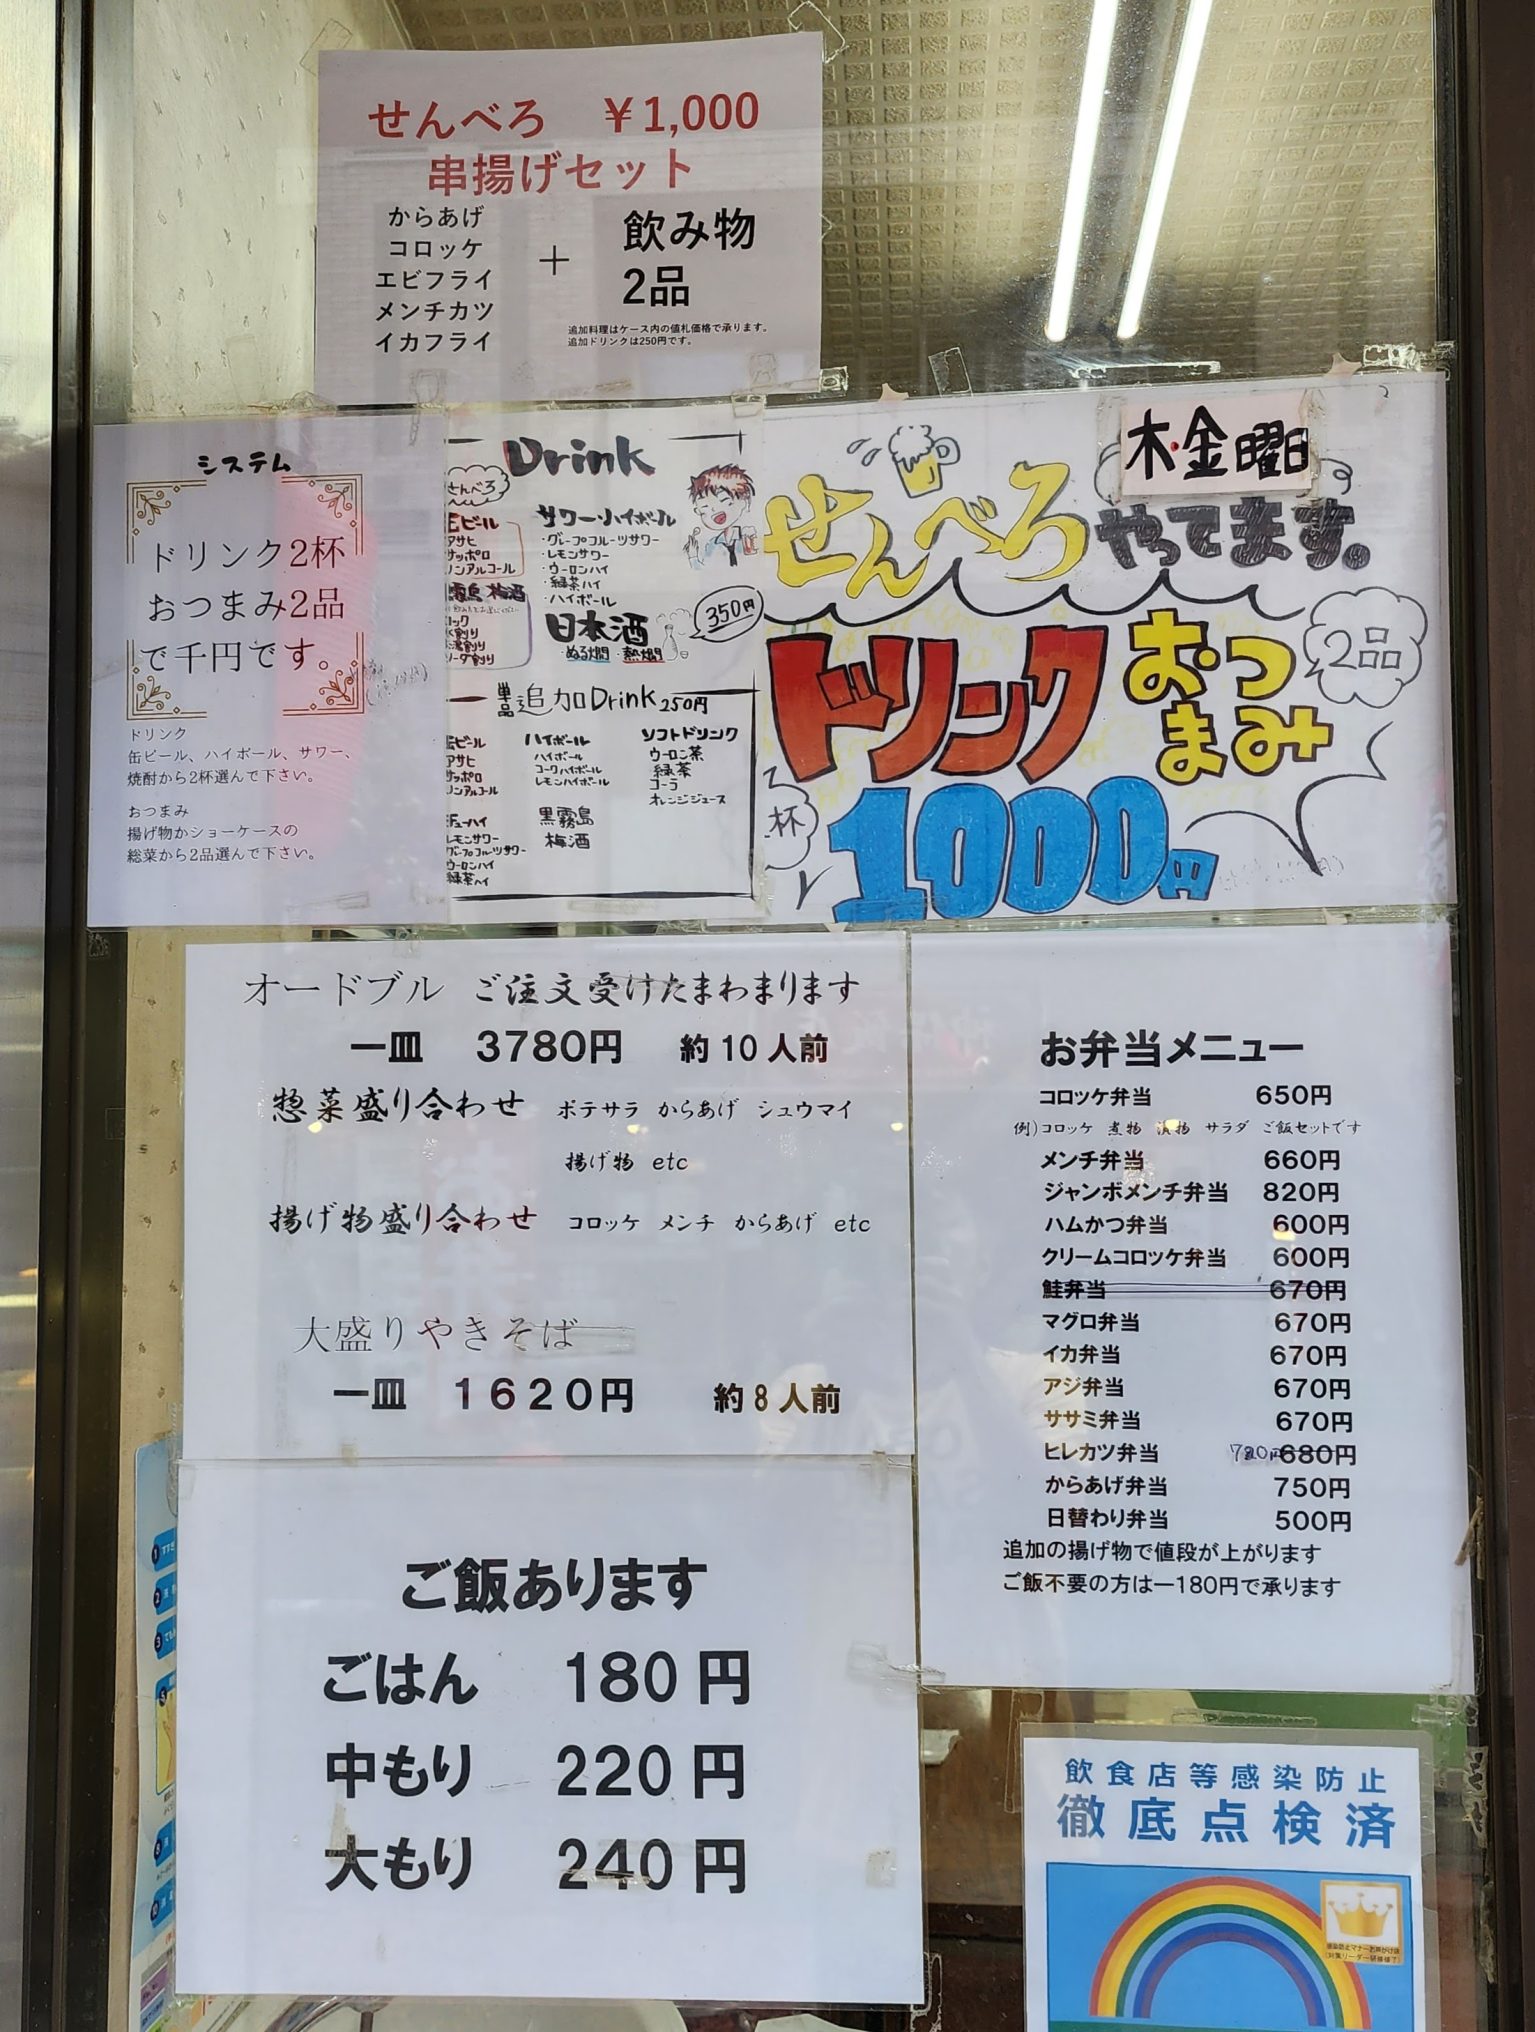 せんべろ ￥1,000
串揚げセット
からあげ
コロッケ
エビフライ
メンチカツ
イカフライ
＋
飲み物
2品
追加料理はケース内の値札価格で承ります。
追加ドリンクは250円です。
システム
ドリンク2杯
おつまみ2品
で千円です。
ドリンク
缶ビール、ハイボール、サワー、
焼酎から2杯選んで下さい。
おつまみ
揚げ物かショーケースの
総菜から2品選んで下さい。
Drink
せんべろ
ビール
アサヒ
サッポロ
ノンアルコール
霧島 梅酒
ロック
水割り
お湯割り
ソーダ割り
サワー・ハイボール
・グレープフルーツサワー
・レモンサワー
・ウーロンハイ
・緑茶ハイ
・ハイボール
日本酒
350円
・ぬる燗 ・熱燗
単品追加Drink 250円
ビール
アサヒ
サッポロ
ノンアルコール
チューハイ
レモンサワー
グレープフルーツサワー
ウーロンハイ
緑茶ハイ
ハイボール
ハイボール
コークハイボール
レモンハイボール
黒霧島
梅酒
ソフトドリンク
ウーロン茶
緑茶
コーラ
オレンジジュース
木・金曜日
せんべろやってます。
ドリンク
杯
おつまみ
2品
1000円
オードブル ご注文受けたまわまります
一皿 3780円 約10人前
惣菜盛り合わせ ポテサラ からあげ シュウマイ
揚げ物 etc
揚げ物盛り合わせ コロッケ メンチ からあげ etc
大盛りやきそば
一皿 1620円 約8人前
お弁当メニュー
コロッケ弁当 650円
例)コロッケ 煮物 漬物 サラダ ご飯セットです
メンチ弁当 660円
ジャンボメンチ弁当 820円
ハムかつ弁当 600円
クリームコロッケ弁当 600円
鮭弁当 670円
マグロ弁当 670円
イカ弁当 670円
アジ弁当 670円
ササミ弁当 670円
ヒレカツ弁当 720円 680円
からあげ弁当 750円
日替わり弁当 500円
追加の揚げ物で値段が上がります
ご飯不要の方は－180円で承ります
ご飯あります
ごはん 180円
中もり 220円
大もり 240円
飲食店等感染防止
徹底点検済
感染防止マナーお声がけ店
(対策リーダー研修修了)